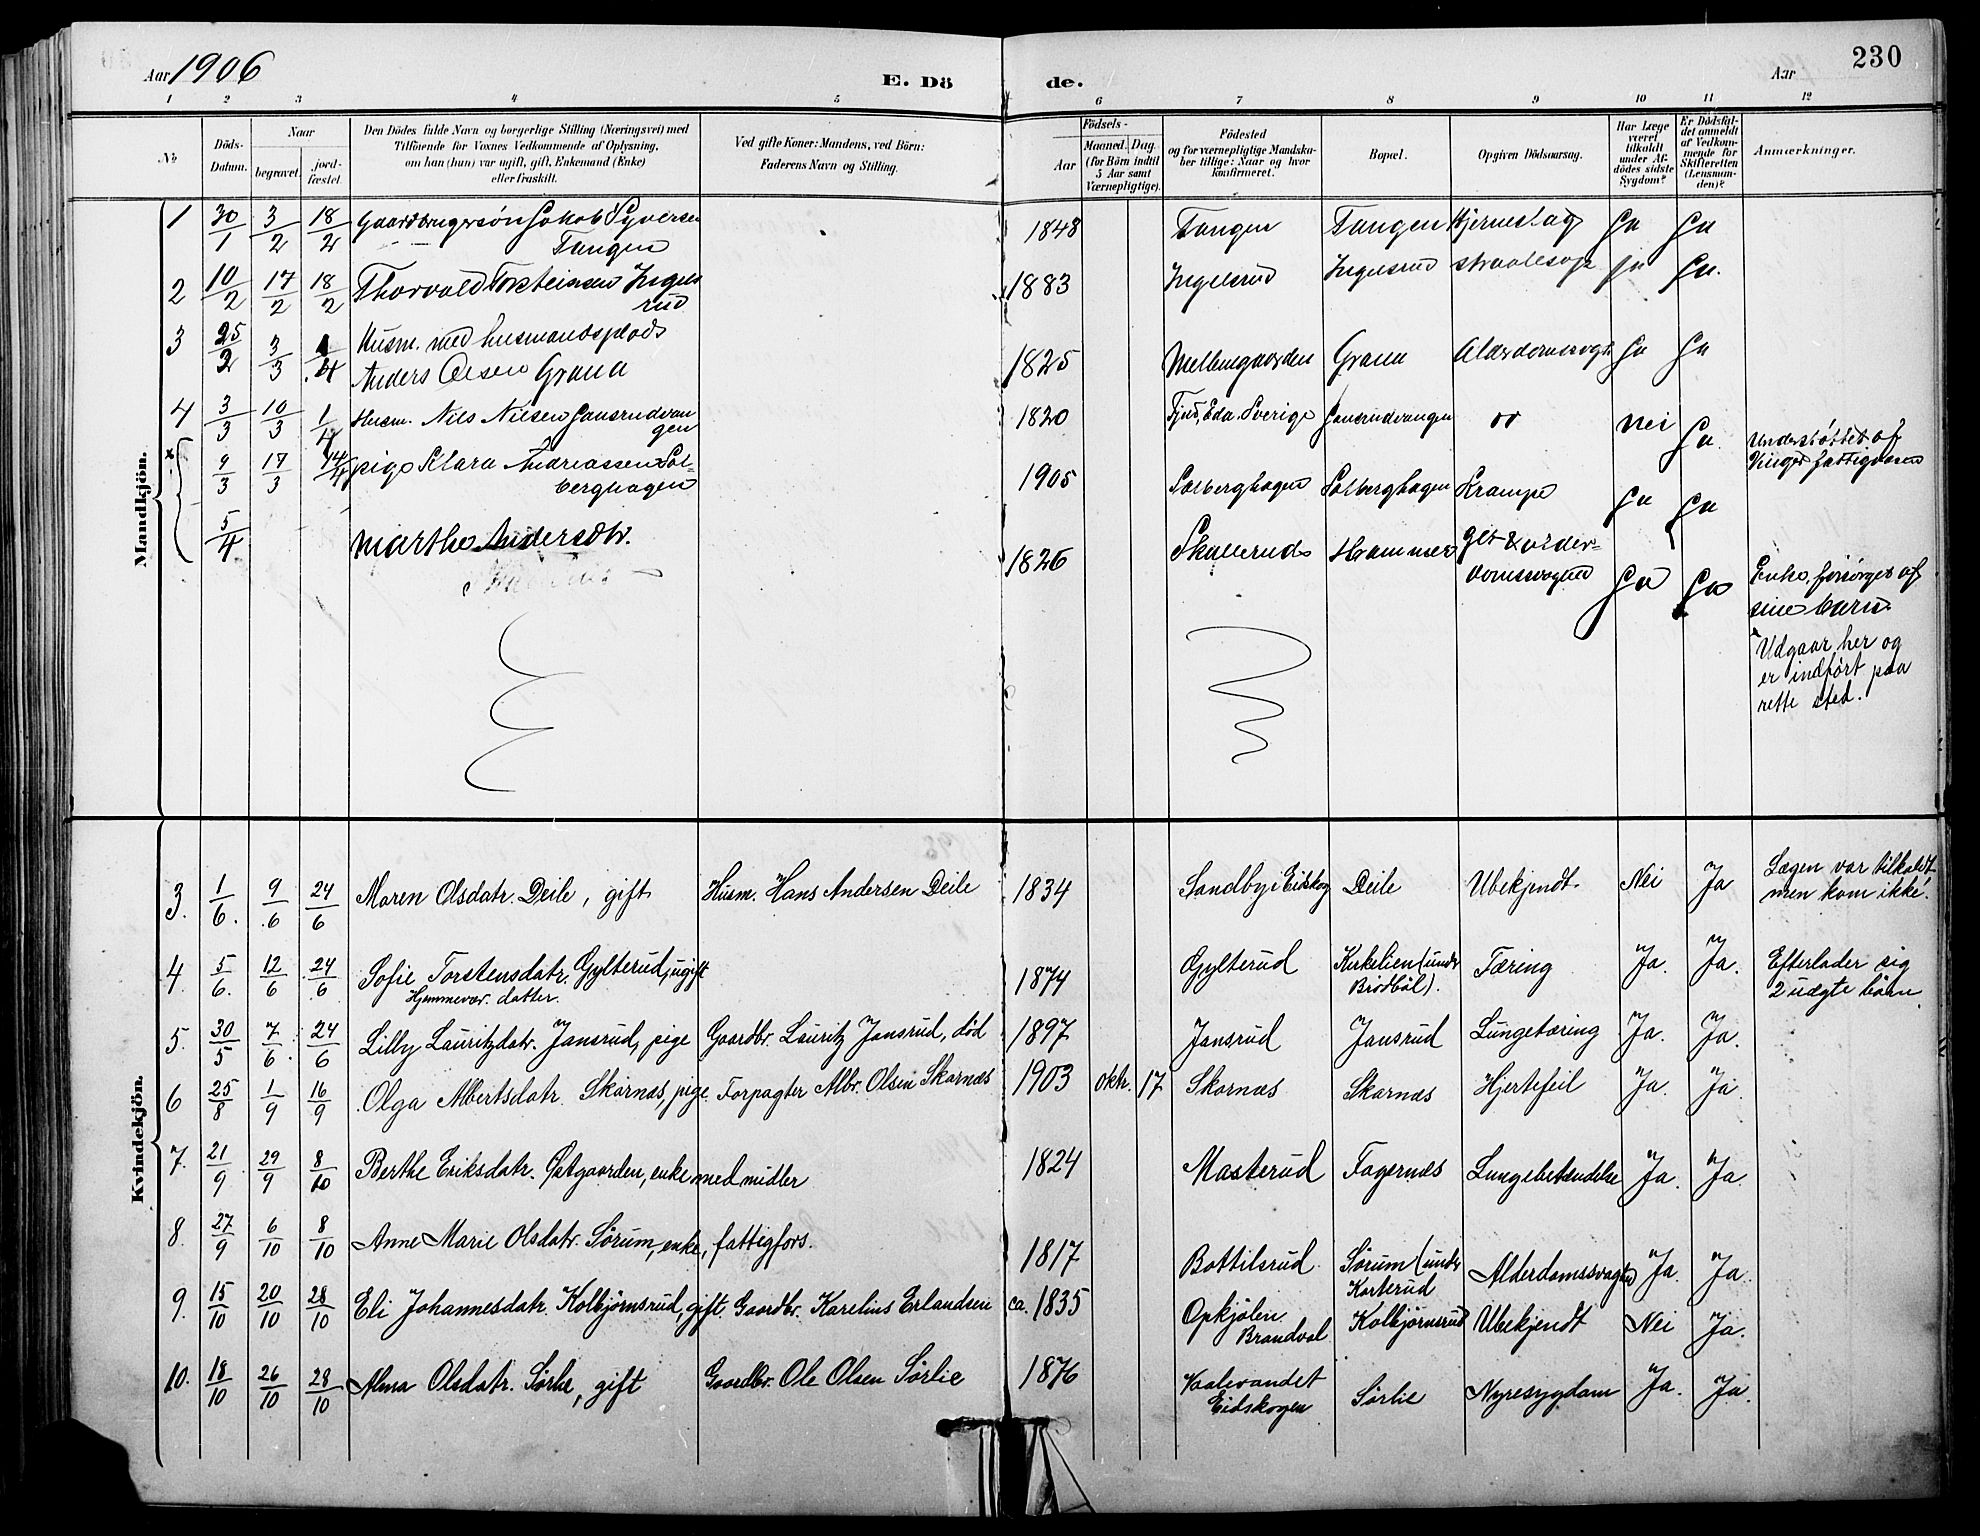 Aar 1906
E. Dö
de.
Aar
230
1 2 3 4 5 6 7 8 9 10 11 12
No
Döds-Datum.
Naar
begravet.
jord-fæstet.
Den Dödes fulde Navn og borgerlige Stilling (Næringsvei) med
Tilföiende for Voxnes Vedkommende af Oplysning,
om han (hun) var ugift, gift, Enkemand (Enke)
eller fraskilt.
Ved gifte Koner: Mandens, ved Börn:
Faderens Navn og Stilling.
Födsels-
Aar
Maaned. Dag.
(for Börn indtil
5 Aar samt
Værnepligtige).
Födested
og for værnepligtige Mandska-
ber tillige: Naar og hvor
konfirmeret.
Bopæl.
Opgiven Dödsaarsag.
Har Læge
været
tilkaldt
under Af-
dödes sidste
Sygdom?
Er Dödsfal-
det anmeldt
af Vedkom-
mende for
Skifteretten
(Lensman-
den)?
Anmærkninger.
Mandkjön.
1 30/1 3/2 18/2 Gaardbrugersøn Jakob Syversen
Tangen
1848 Tangen Tangen Hjerneslag Ja Ja
2 10/2 17/2 18/2 Thorvald Torsteinsen Ingels
rud
1883 Ingelsrud Ingelsrud Ja Ja.
3 25/2 3/3 Husm. med husmandsplads
Anders Olsen Grana
1825 Mellemgaarden Grana Ja Ja
4 3/3 10/3 1/4 Husm. Nils Nilsen Jansrudvan
gen
1820 Eda. Sverige Jansrudvangen Nei Ja.
Understøttet af
Vinger fattigvæsen
x 9/3 17/3 pige Klara Andreassen Sol-
berghagen
1905 Solberghagen Solberghagen Krampe Ja Ja
5/4 Marthe Andersdtr.
1826 Skallerud Hammer
Ja Ja
Enke, forsørget af
sine børn.
x Udgaar her og
er indført paa
rette sted.
Kvindekjön.
3. 1/6. 9/6 24/6 Maren Olsdatr. Deile, gift Husm. Hans Andersen Deile 1834 Sandby i Eidskog Deile Ubekjendt. Nei Ja
Lægen var tilkaldt
men kom ikke.
4. 5/6. 12/6 24/6 Sofie Torstensdatr. Gylterud, ugift
Hjemmevær. datter.
1874 Gylterud Kirkelien (under
Brødbøl).
Tæring Ja. Ja.
Efterlader sig
2 uægte børn.
5. 30/5 7/6. 24/6 Lilly Lauritzdatr. Jansrud, pige Gaardbr. Lauritz Jansrud, død 1897 Jansrud Jansrud Lungetæring Ja. Ja.
6 25/8 1/9 16/9 Olga Albertsdatr. Skarnæs, pige. Forpagter Albr. Olsen Skarnæs 1903 oktr. 17 Skarnæs Skarnæs Hjertefeil Ja. Ja.
7. 21/9 29/9 8/10 Berthe Eriksdatr. Østgaarden, enke med midler 1824 Masterud Fagernæs Lungebetændelse Ja. Ja.
8. 27/9 6/10 8/10 Anne Marie Olsdatr. Sørum, enke, fattigfors. 1817 Bottilsrud Sørum (under
Korterud
Alderdomssvaghed Ja. Ja.
9. 15/10 20/10 28/10 Eli Johannesdatr. Kolbjørnsrud, gift. Gaardbr. Karelius Erlandsen ca. 1835 Opkjølen
Brandval
Kolbjørnsrud Ubekjendt Nei Ja.
10. 18/10 26/10 28/10 Alma Olsdatr. Sørlie, gift Gaardbr. Ole Olsen Sørlie 1876
Eidskogen
Sørlie Nyresygdom Ja. Ja.